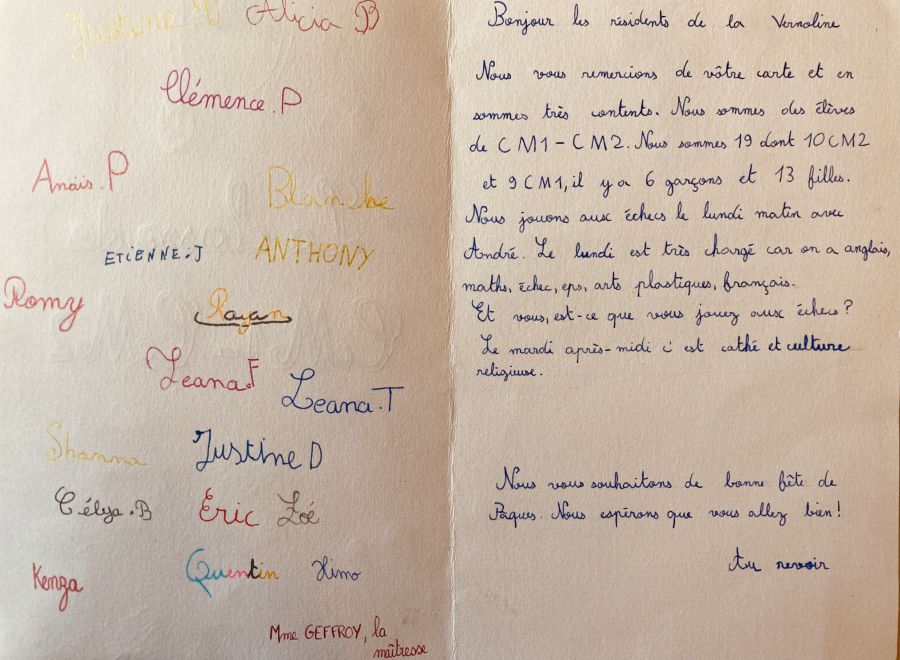 Justine.V
Alicia B
Clémence.P
Anaïs.P
Blanche
ETIENNE.J
ANTHONY
Romy
Rayan
Leana.F
Leana.T
Shanna
Justine D
Célya.B
Eric
Zoé
Kenza
Quentin
Ximo
Mme GEFFROY, la
maîtresse
Bonjour les résidents de la Vernoline
Nous vous remercions de vôtre carte et en
sommes très contents. Nous sommes des élèves
de CM1-CM2. Nous sommes 19 dont 10 CM2
et 9 CM1, il y a 6 garçons et 13 filles.
Nous jouons aux échecs le lundi matin avec
André. Le lundi est très chargé car on a anglais,
maths, échec, eps, arts plastiques, français.
Et vous, est-ce que vous jouez aux échecs?
Le mardi après-midi c'est cathé et culture
religieuse.
Nous vous souhaitons de bonne fête de
Pâques. Nous espérons que vous allez bien!
Au revoir